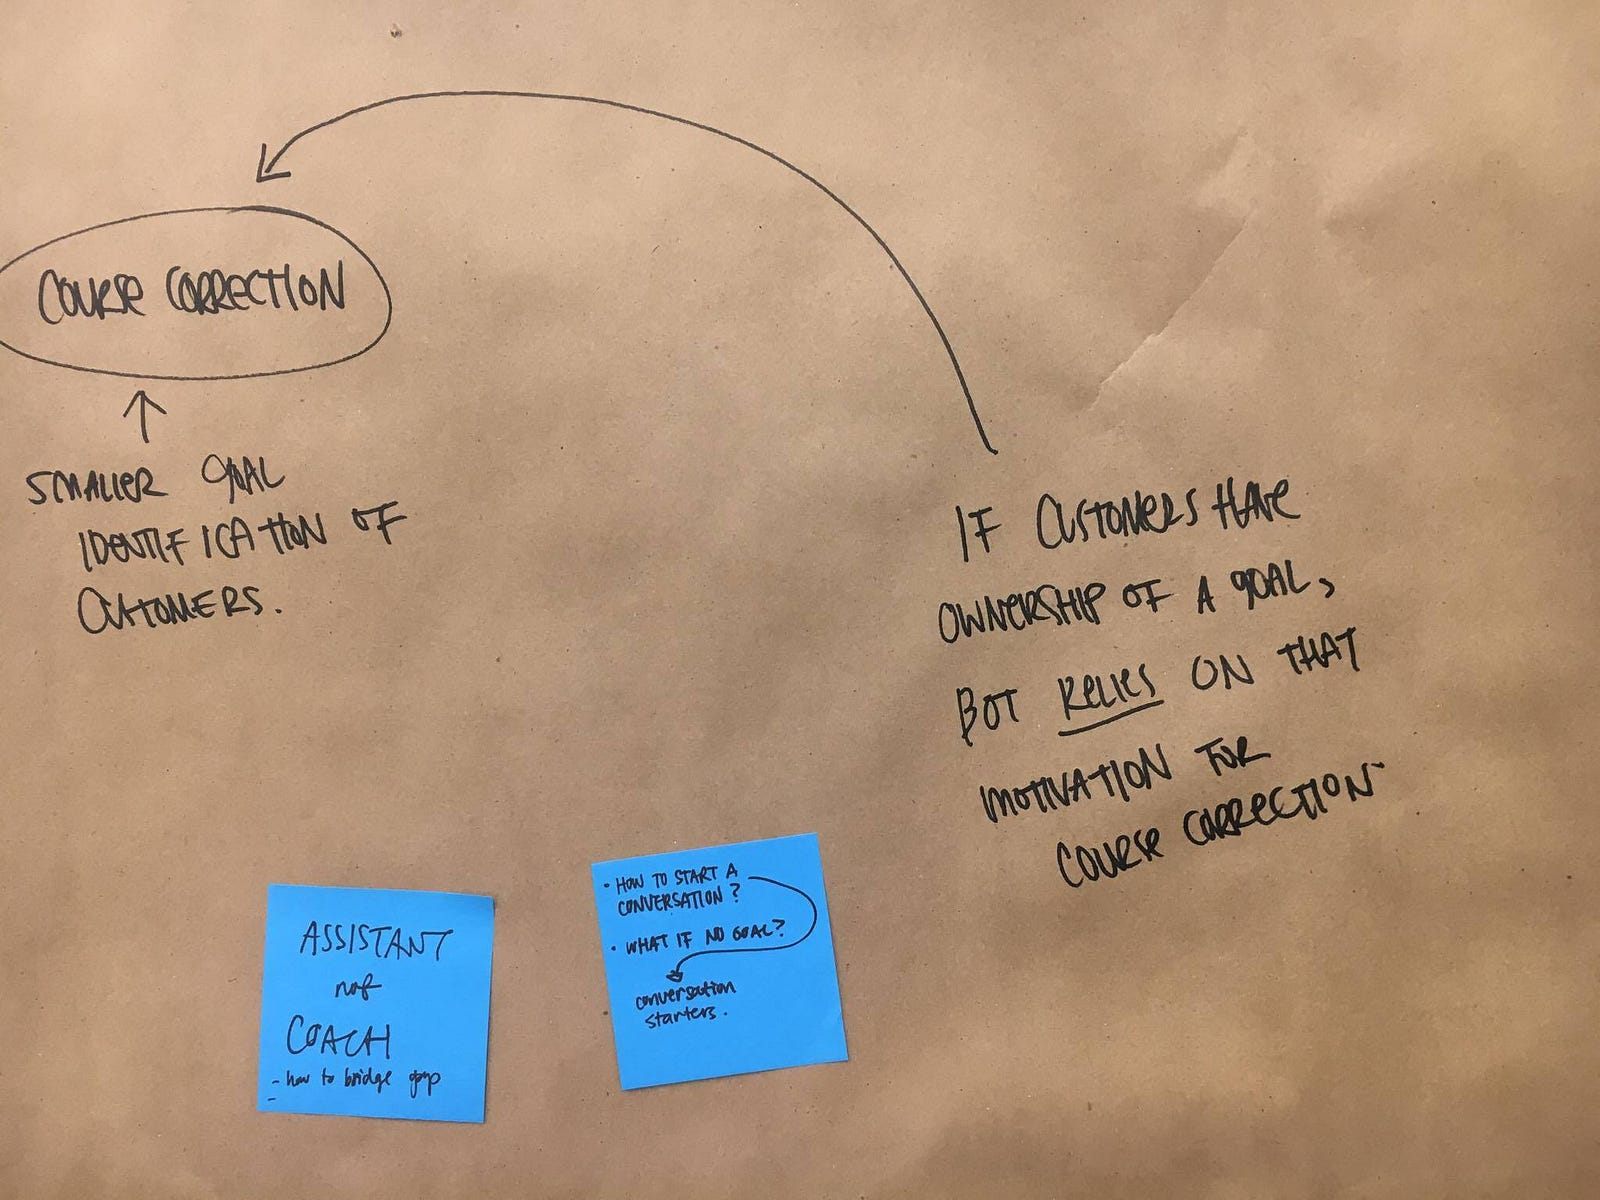 COURSE CORRECTION
SMALLER GOAL
IDENTIFICATION OF
CUSTOMERS.
IF CUSTOMERS HAVE
OWNERSHIP OF A GOAL,
BOT RELIES ON THAT
MOTIVATION FOR
COURSE CORRECTION
ASSISTANT
not
COACH
- how to bridge gap
-
• HOW TO START A
CONVERSATION?
• WHAT IF NO GOAL?
conversation
starters.